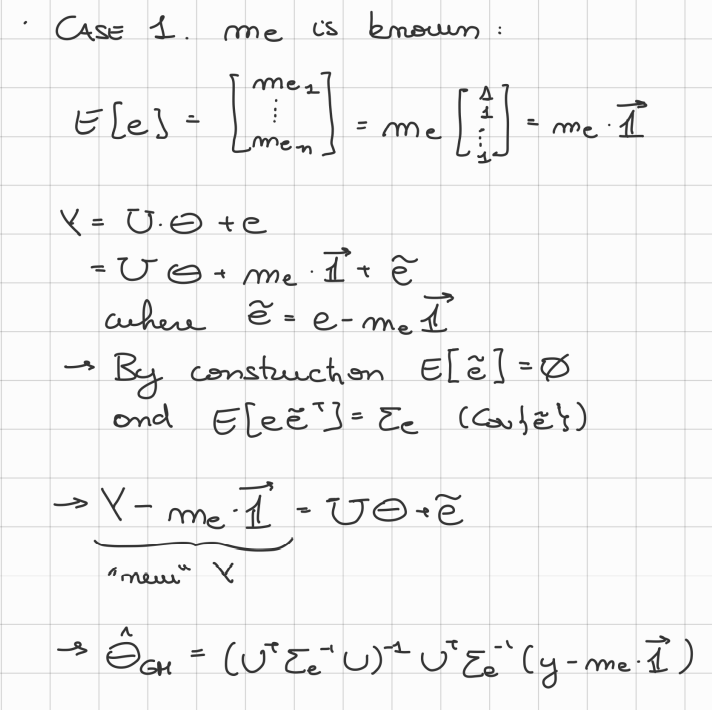 · CASE 1. me is known :
E[e] = [me₁ ⋮ meₙ] = me [1 1 ⋮ 1] = me · 1⃗
Y = U·Θ + e
= UΘ + me · 1⃗ + ẽ
where ẽ = e - me 1⃗
→ By construction E[ẽ] = ∅
and E[eẽᵀ] = Σe (Cov{ẽ})
→ Y - me · 1⃗ = UΘ + ẽ
"new" Y
→ Θ̂GM = (UᵀΣe⁻¹U)⁻¹UᵀΣe⁻¹(y - me · 1⃗)